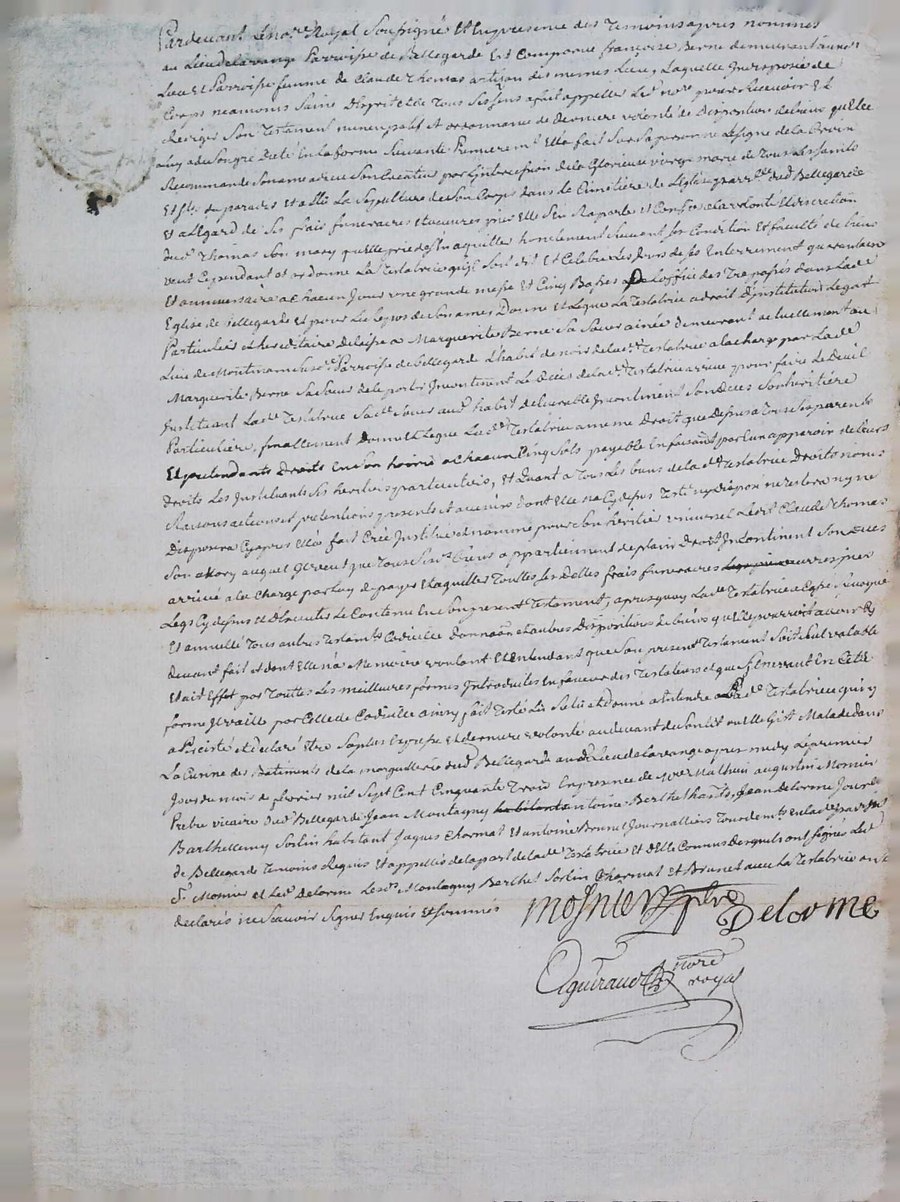 Pardevant Le no.re Royal Soussigné Et En presence des Temoins apres nommés
au Lieu delavange Parroisse de Bellegarde Est Comparue françoise Berne demeurant aud.t
Lieu et Parroisse femme de Claude Thomas artizan dis memes Lieu, Laquelle Jndisposée de
Corps neamoins Saine d'Esprit et de Tous Ses Sens a fait appeller Le no.re pour Recevoir Et
Rediger Son Testament nuncupatif Et ordonnance de derniere volonté et Disposition de biens qu'Elle
a Dicté En la forme Suivante Premierem.t Elle a fait Sur Sa personne Le signe de la Croix
Recommandé Son ame a dieu Son Createur par L'intercession de la Glorieuse vierge marie de Tous Les Saints
Et S.tes de paradis et a Elû La Sepulture de Son Corps dans Le Cimetiere de L'Eglise parr.lle dud. Bellegarde
Et a L'Egard de Ses frais funeraires Elle S'En Raporte et Confie a la volonté Et discretion
dud.t Thomas Son mary qu'Elle prie de S'En aquitter honetement Suivant Sa Condition Et faculté de biens
veut Cependant et ordonne La Testatrice qu'il Soit dit Et Celebré Les Jours de Son Enterrement quarantaine
Et anniversaire a Chacun Jour une grande messe Et Cinq Basses de L'office des Trepassés dans Lad.e
Eglise de Bellegarde Et pour Le Repos de Son ame Donne et Legue La Testatrice a droit D'institution Legat
Particulier et hereditaire delaisse a Marguerite Berne Sa Soeur ainée demeurant actuellement au
Lieu de Parroisse de Bellegarde L'habit de noir de Lad.e Testatrice a la charge par Lad.e
Marguerite Berne Sa Soeur de le porter Le Déces de Lad.e Testatrice arrivé pour faire Le Deuil
Jnstituant Lad.e Testatrice Sad.e Soeur aud. habit Jncontinent Son Deces Son heritiere
Particuliere, finallement donne Et Legue Lad.e Testatrice a meme Droit que Dessus a Tous Ses parents
Et pretendants Droits En Son hoirie a Chacun Cinq Sols payable En faisant par L'un apparoir de Leurs
droits Les Jnstituants Ses heritiers particuliers, Et Quant a Tous Les biens de Lad.e Testatrice Droits noms
Raisons actions et pretentions presents et avenirs dont Elle n'a Cydessus Testé ny Disposé
Disposera Cyapres Elle a fait Créé Jnstitué et nommé pour Son heritier universel Led.t Claude Thomas
Son Mary auquel Elle veut que Tous Sesd.ts biens appartiennent de plain Droit Jncontinent Son Deces
arrivé a la Charge par Luy de payer Et aquitter Toutes Ses Dettes frais funeraires
Legs Cydessus et d'Executer Le Contenu En Son present Testament, apres quoy Lad.e Testatrice a Cassé Revoqué
Et annullé Tous autres Testam.ts Codicilles donna.ons Et autres Dispositions de biens qu'Elle pourroit avoir Cy
devant fait et dont Elle n'a Memoire voulant Et Entendant que Son present Testament Soit Seul valable
Et ait Effet par Toutes Les meilleures formes Jntroduites En faveur des Testateurs
forme Jl vaille par Celle de Codicille ainsy fait Testé Lû Relû et donné a Entendre a Lad.e Testatrice qui y
a persisté et declaré Etre Sa plus Expresse Et derniere volonté au devant de Son Lit ou Elle Git Malade dans
La Cuisine des Batiments de la marguillerie dud. Bellegarde aud.t Lieu de La vange apres midy Le premier
Jour du mois de fevrier mil Sept Cent Cinquante Trois En presence de M.re Mathieu augustin Monier
Prêtre vicaire dud.t Bellegarde Jean Montagny antoine Berthet habitants, Jean Delorme Journ.r
Barthellemy Sorlin habitant Jaques Charmat Et antoine Brunet Journalliers Tous dem.ts En lad.e parr.sse
de Bellegarde Temoins Requis Et appellés de la part de Lad.e Testatrice et d'Elle Connus desquels ont Signé Led.t
S.r Monier et Led.t Delorme Les d.ts Montagny Berthet Sorlin Charmat et Brunet avec La Testatrice ont
declarés ne Scavoir Signer Enquis Et Sommés
mosnier ptre
Delorme
Aguiraud no.re
royal